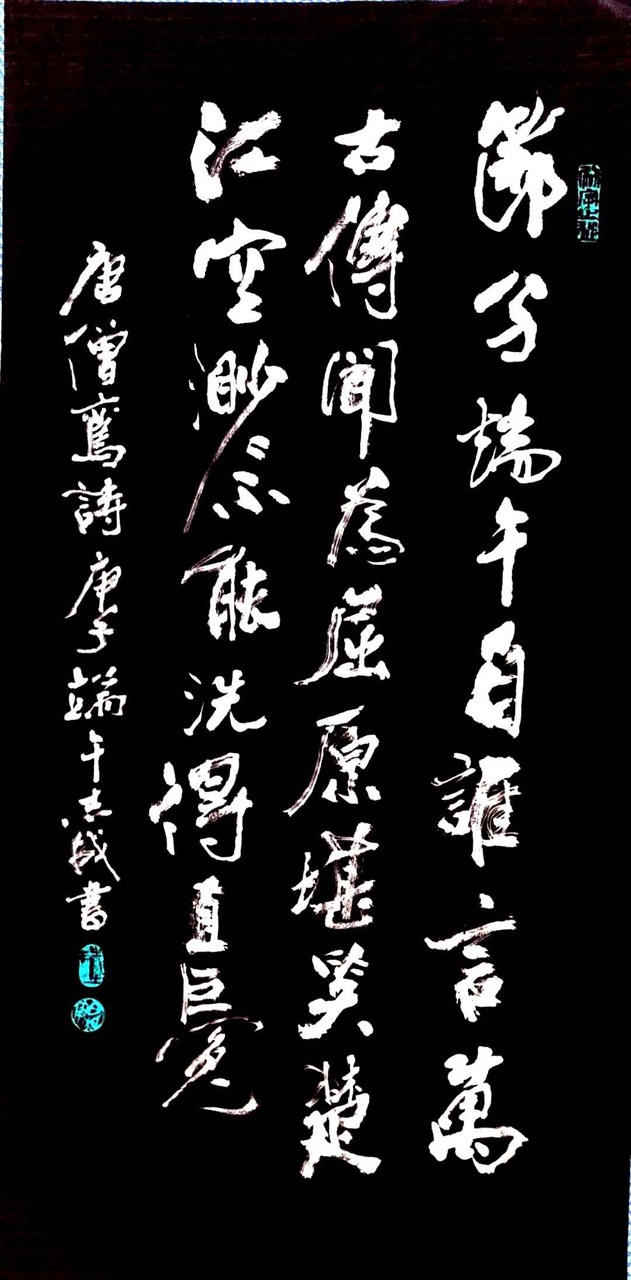 節分端午自誰言萬
古傳聞為屈原堪笑楚
江空渺渺不能洗得直臣冤
唐僧鸞詩庚子端午志成書